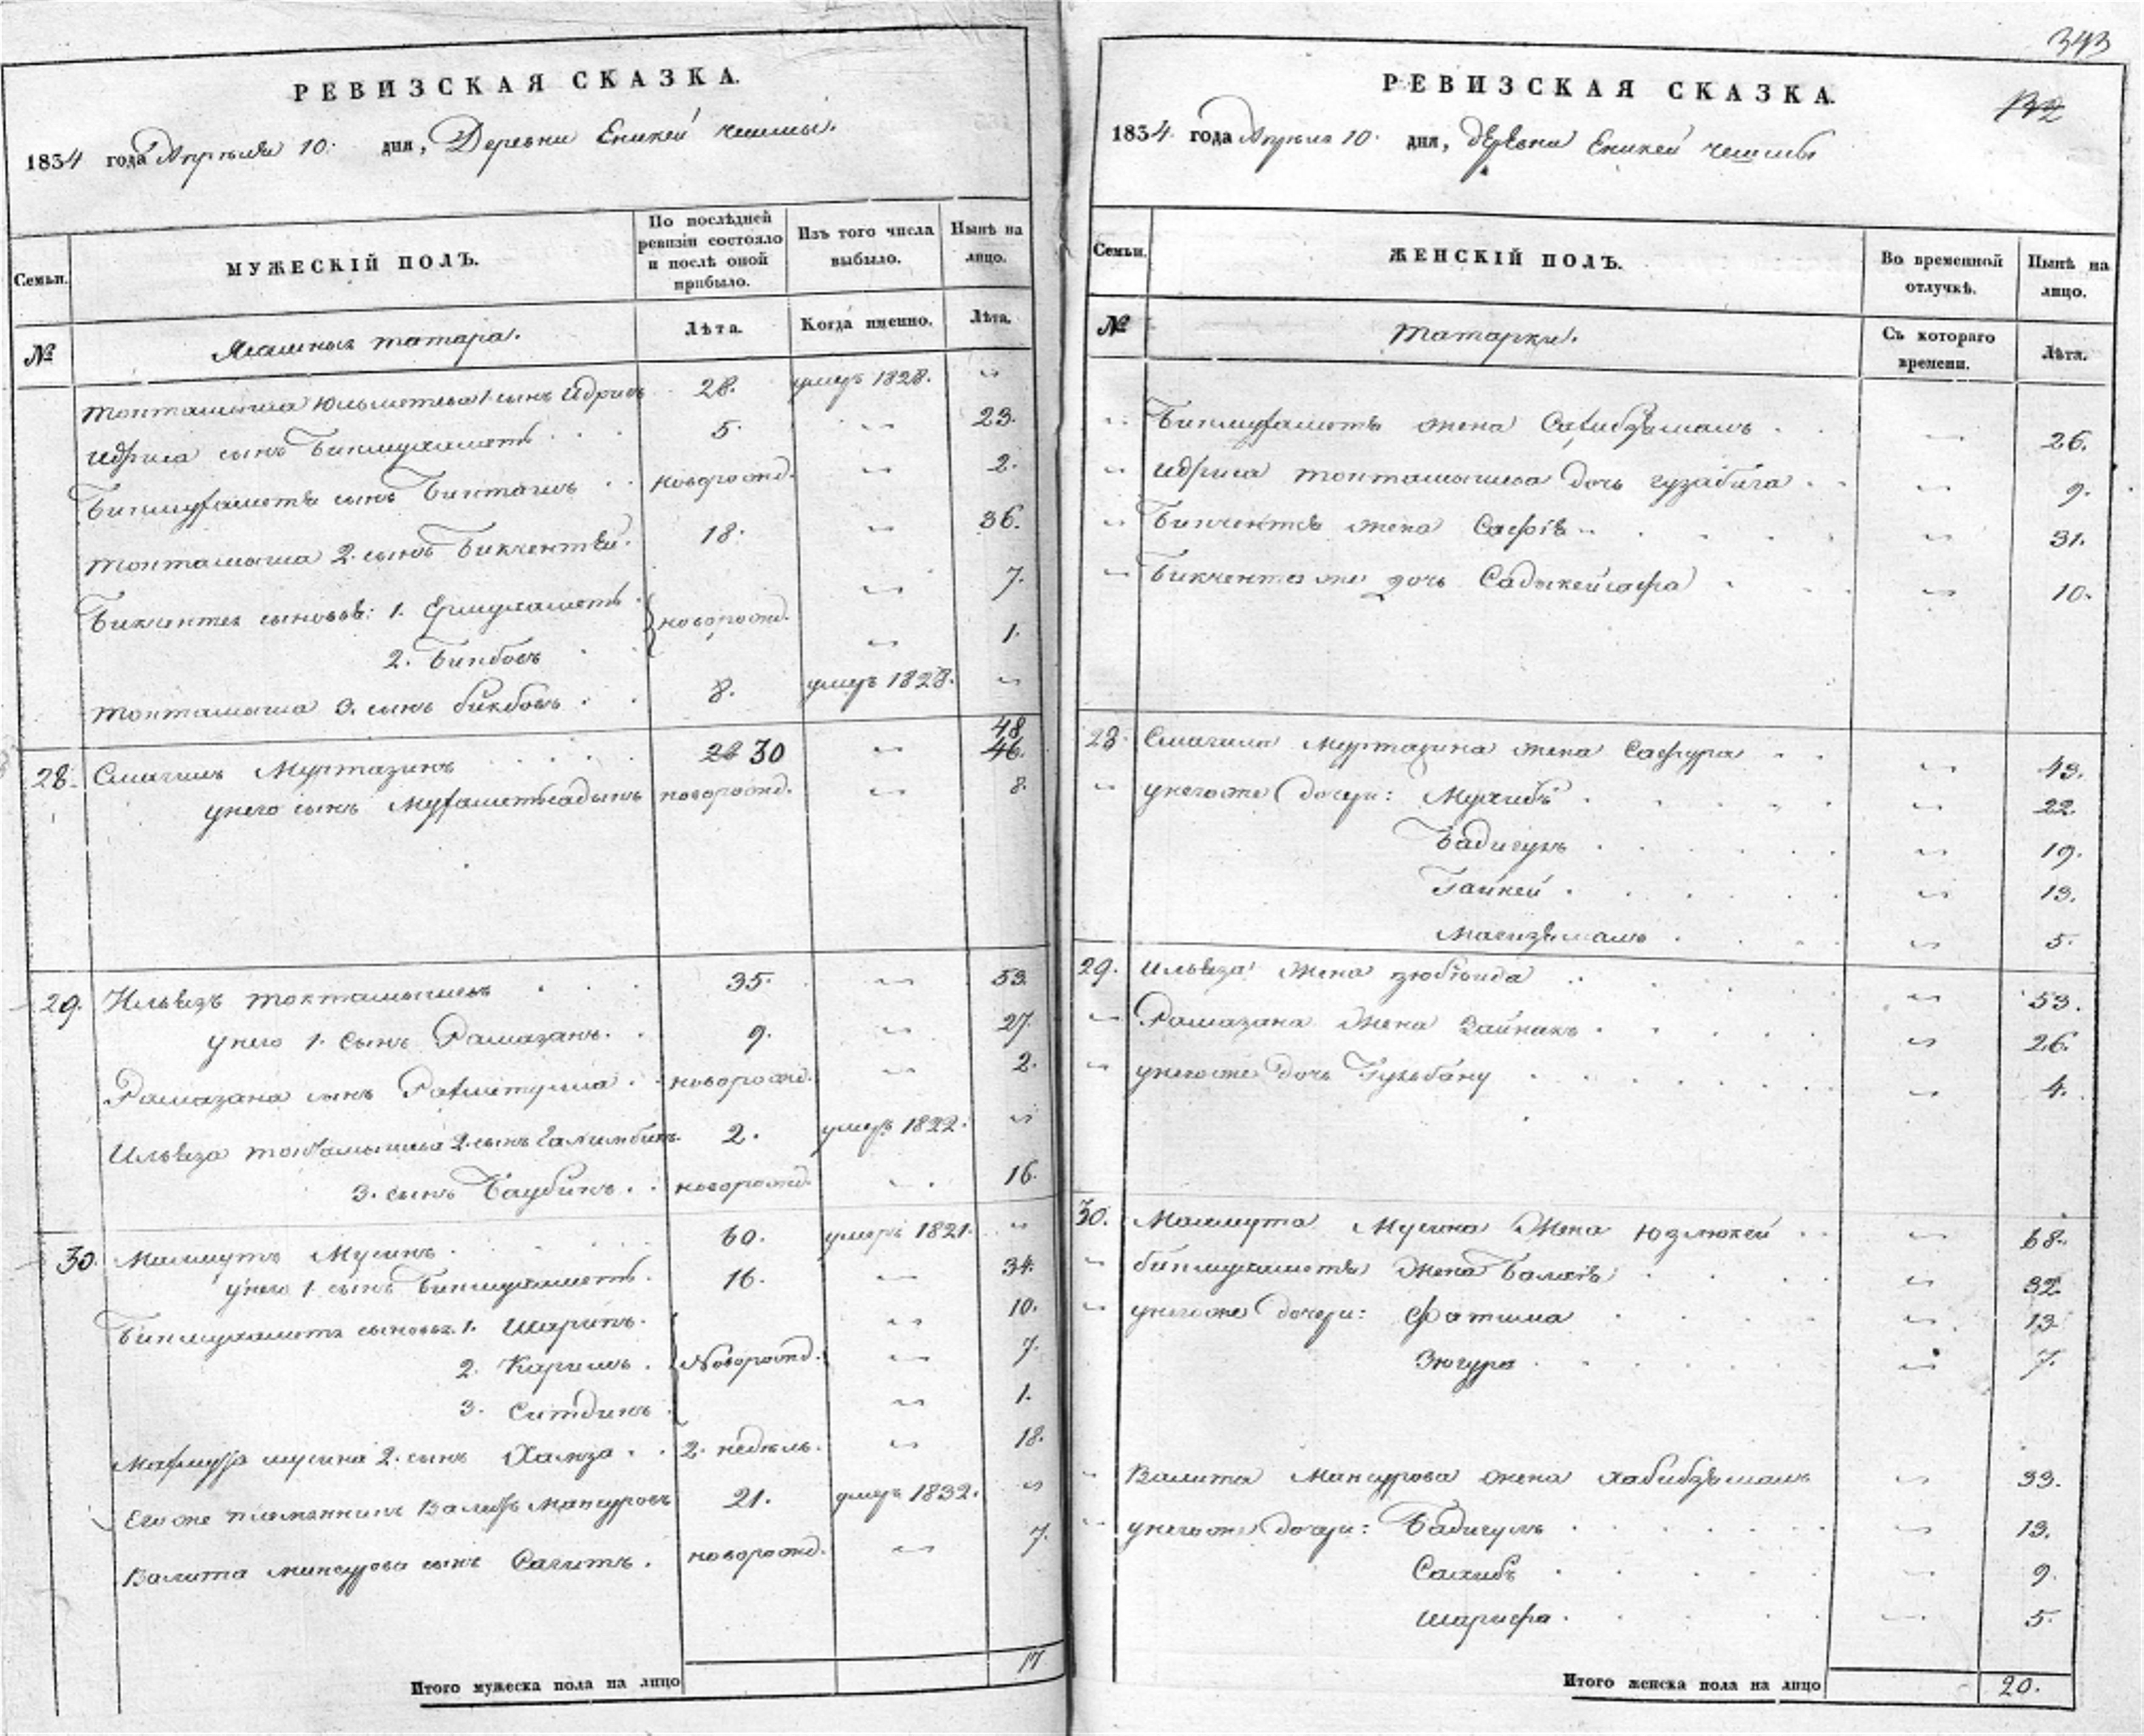 РЕВИЗСКАЯ СКАЗКА.
1834 года Апреля 10. дня, Деревни Еникей чешмы.
Семьи.
МУЖЕСКІЙ ПОЛЪ.
По послѣдней ревизіи состояло и послѣ оной прибыло.
Изъ того числа выбыло.
Нынѣ на лицо.
№
Ясашныя татара.
Лѣта.
Когда именно.
Лѣта.
Токтамыша 1. сынъ Идрисъ 28. умеръ 1828. "
Идриса сынъ Бикмухаметъ 5. " 23.
Бикмухаметя сынъ Бикташъ новорожд. " 2.
Токтамыша 2. сынъ Бикчентей. 18. " 36.
Бикчентея сыновья: 1. Ермухаметъ новорожд. " 7.
2. Бикбовъ " 1.
Токтамыша 3. сынъ Бикбовъ 8. умеръ 1828. "
48
28. Смагилъ Муртазинъ 28 30 " 46.
у него сынъ Мухаметьсадыкъ новорожд. " 8.
29. Ильязъ Токтамышевъ 35. " 53.
у него 1. сынъ Рамазанъ. 9. " 27.
Рамазана сынъ Рахметулла новорожд. " 2.
Ильяза Токтамышева 2. сынъ 2. умеръ 1822. "
3. сынъ новорожд. " 16.
30. Махмутъ Мусинъ 60. умеръ 1821. "
у него 1. сынъ Бикмухаметъ. 16. " 34.
Бикмухаметя сыновья. 1. Шарипъ. Новорожд. " 10.
2. Каримъ. " 7.
3. Ситдикъ " 1.
Махмута Мусина 2. сынъ Хамза 2. недель. " 18.
Его же племянникъ Валитъ Мансуровъ 21. умеръ 1832. "
Валита Мансурова сынъ Сагитъ. новорожд. " 7.
Итого мужеска пола на лицо 17
343
132
РЕВИЗСКАЯ СКАЗКА.
1834 года Апреля 10. дня, деревни Еникей чешмы
Семьи.
ЖЕНСКІЙ ПОЛЪ.
Во временной отлучкѣ.
Нынѣ на лицо.
№
Татарки.
Съ котораго времени.
Лѣта.
" Бикмухаметя жена " 26.
" Идриса Токтамышева дочь Гузабига " 9.
" Бикчентея жена Сафія " 31.
" Бикчентея же дочь " 10.
28. Смагила Муртазина жена Сафура " 43.
" у него же дочери: Мухибъ " 22.
Бадигулъ " 19.
Гайней " 13.
" 5.
29. Ильяза жена Зюбаида " 53.
" Рамазана жена Зайнапъ " 26.
" у него же дочь Гульбану " 4.
30. Махмута Мусина жена Юзлюкей " 68.
" Бикмухаметя жена " 32.
" у него же дочери: Фатима " 13
Зюгура " 7.
" Валитя Мансурова жена Хабибзямалъ " 33.
" у него же дочери: Бадигулъ " 13.
Сахибъ " 9.
Шарифа " 5.
Итого женска пола на лицо 20.